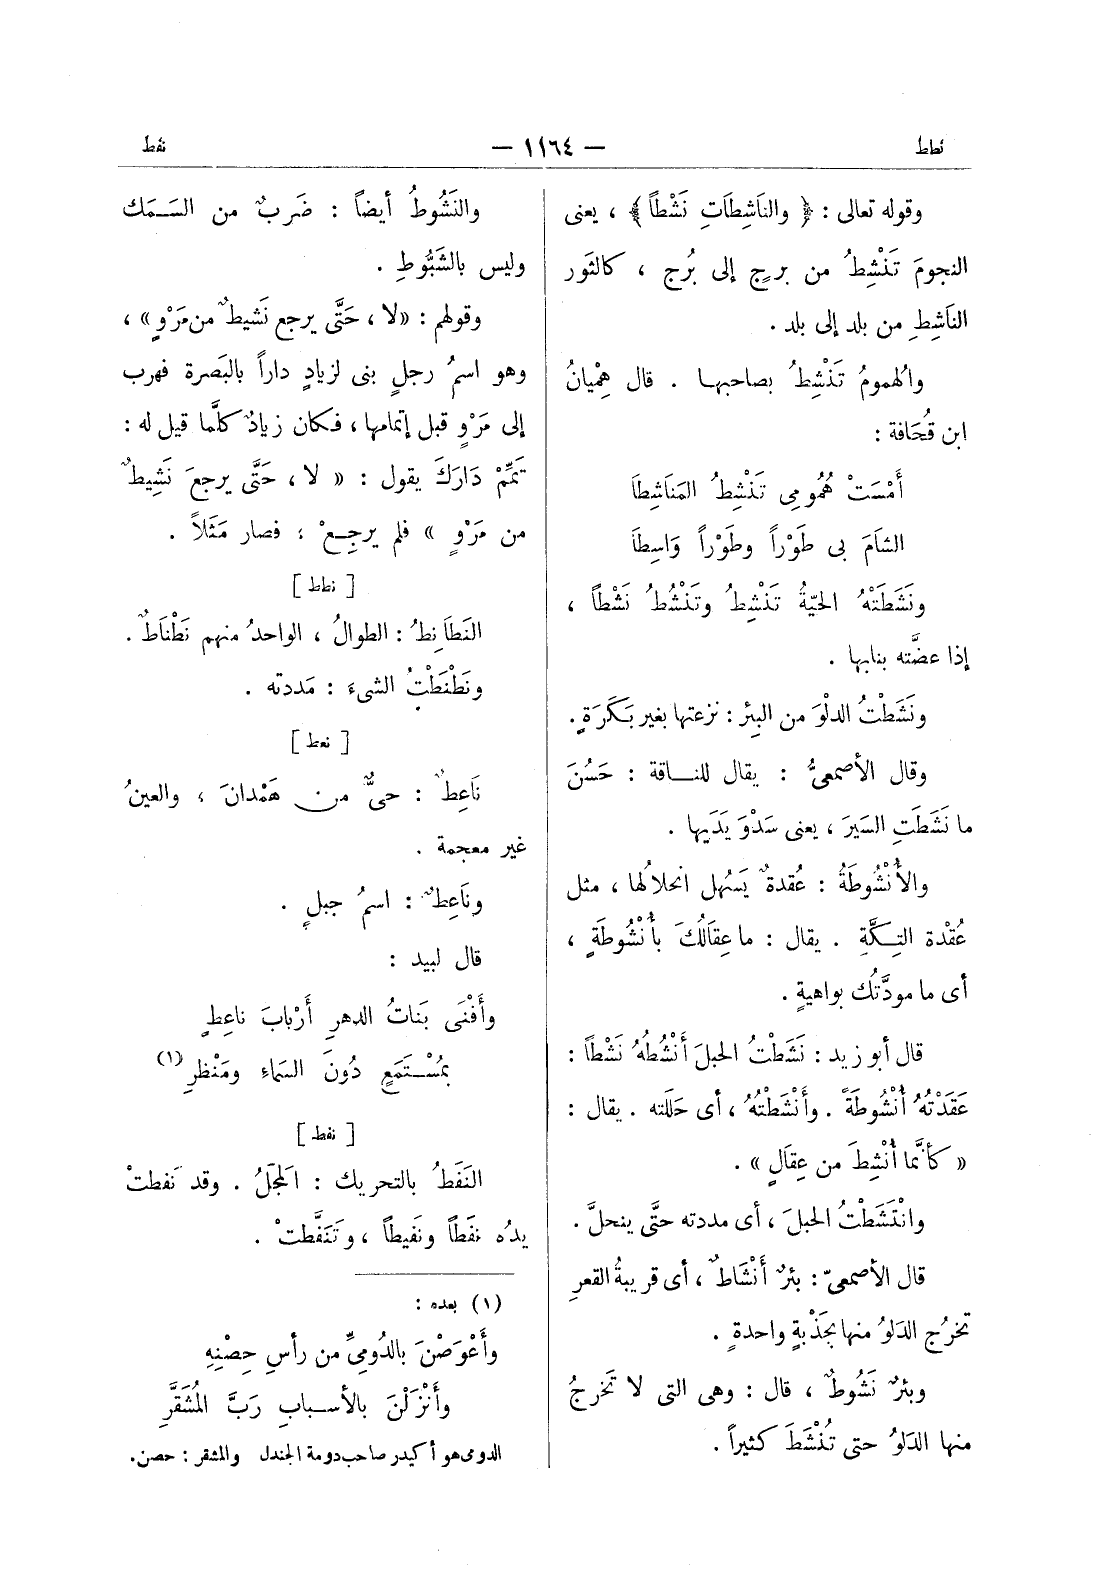 نطط — ١١٦٤ — نفط
وقوله تعالى : ﴿ والنَاشِطَاتِ نَشْطاً ﴾ ، يعنى
النجومَ تَنْشِطُ من برجٍ إلى بُرج ، كالثَور
الناَشِطِ من بلد إلى بلد .
والهمومُ تَنْشِطُ بصاحبها . قال هِمْيانُ
ابن قُحَافة :
أَمْسَتْ هُمُومِى تَنْشِطُ المَناَشِطاَ
الشاَمَ بِى طَوْراً وطَوْراً وَاسِطاَ
ونَشَطَتْهُ الحيّةُ تَنْشِطُ وتَنْشُطُ نَشْطاً ،
إذا عضَّته بنابها .
ونَشَطْتُ الدلْوَ من البِئر : نزعتها بغير بَكَرَةٍ .
وقال الأصمعىُّ : يقال للناقة : حَسُنَ
ما نَشَطَتِ السَيرَ ، يعنى سَدْوَ يَدَيها .
والأُنْشُوطَةُ : عُقدةٌ يَسْهُل انحلالُها ، مثل
عُقْدة التِكَّةِ . يقال : ما عِقَالُكَ بأُنْشُوطَةٍ ،
أى ما مودَّتُك بواهيةٍ .
قال أبو زيد : نَشَطْتُ الحبلَ أَنْشُطُهُ نَشْطاً :
عَقَدْتُهُ أُنْشُوطَةً . وأَنْشَطْتُهُ ، أى حَللته . يقال :
« كأنَّما أُنْشِطَ من عِقَالٍ » .
وانْتَشَطْتُ الحبلَ ، أى مددته حتَّى ينحلَّ .
قال الأصمعىّ : بئرٌ أَنْشَاطٌ ، أى قريبةُ القعرِ
تخرُج الدَلوُ منها بجَذْبةٍ واحدةٍ .
وبئرٌ نَشُوطٌ ، قال : وهى التى لا تَخرجُ
منها الدَلوُ حتى تُنْشَطَ كثيراً .
والنَشُوطُ أيضاً : ضَربٌ من السَمك
وليس بالشَبُّوطِ .
وقولهم : «لا ، حَتَّى يرجع نَشيطٌ من مَرْوٍ» ،
وهو اسمُ رجلٍ بنى لزيادٍ داراً بالبَصرة فهرب
إلى مَرْوٍ قبل إتمامها ، فكان زيادٌ كلَّما قيل له :
تَمِّمْ دَارَكَ يقول : « لا ، حَتَّى يرجعَ نَشِيطٌ
من مَرْوٍ » فلم يرجِعْ ؛ فصار مَثَلاً .
[ نطط ]
النَطاَنِطُ : الطوالُ ، الواحدُ منهم نَطْناَطٌ .
ونَطْنَطْتُ الشىءَ : مَددته .
[ نعط ]
ناَعِطٌ : حىٌّ من هَمْدانَ ، والعينُ
غير معجمة .
وناَعِطٌ : اسمُ جبلٍ .
قال لبيد :
وأَفْنَى بَناَتُ الدهرِ أَرْبابَ ناعِطٍ
بمُسْتَمَعٍ دُونَ السماءِ ومَنْظرِ (١)
[ نفط ]
النَفَطُ بالتحريك : المَجْلُ . وقد نَفِطتْ
يدُه نفَطاً ونَفيطاً ، وتَنَفَّطتْ .
(١) بعده :
وأَعْوَصْنَ بالدُومِىِّ من رأسِ حِصْنِهِ
وأَنْزَلْنَ بالأسبابِ رَبَّ المُشَقَّرِ
الدومى هو أكيدر صاحب دومة الجندل والمشقر : حصن.